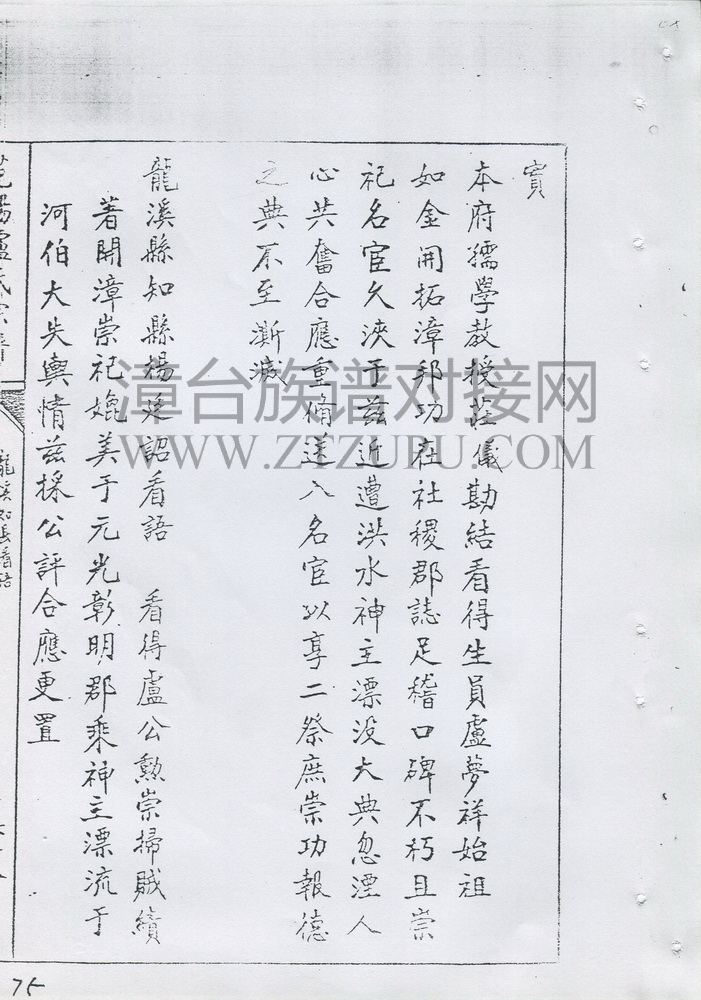 實
本府儒學教授莊儀勘結看得生員盧夢祥始祖
如金開拓漳邦功在社稷郡誌足稽口碑不朽且崇
祀名宦久浹于茲近遭洪水神主漂没大典忽湮人
心共奮合應重脩送入名宦以享二祭庶崇功報德
之典不至澌滅
龍溪縣知縣楊廷詔看語 看得盧公勲崇掃賊績
著開漳崇祀媲美于元光彰明郡乘神主漂流于
河伯大失輿情茲採公評合應更置
漳台族谱对接网
WWW.ZTZUPU.COM
75